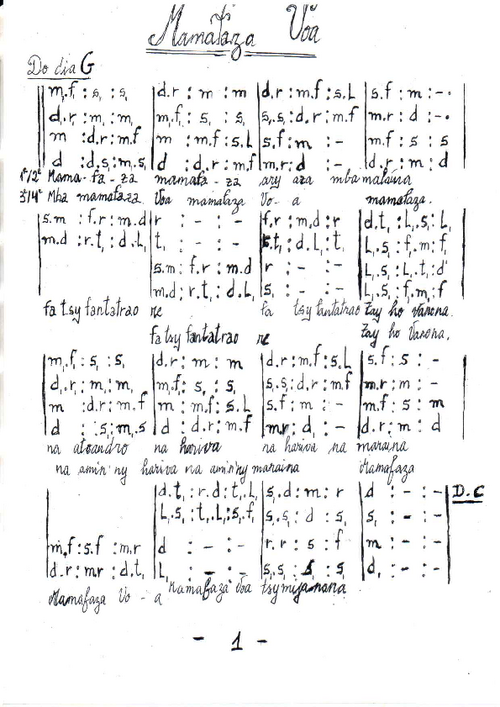 Mamafaza Voa
Do dia G
m,.f, : s, : s, | d.r : m : m | d.r : m.f : s.L | s.f : m : -.
d,.r, : m, : m, | m,.f, : s, : s, | s,.s, : d.r : m.f | m.r : d : -.
m : d.r : m.f | m : m.f : s.L | s.f : m : - | m.f : s : s
d : d,.s, : m,.s, | d : d.r : m.f | m.r : d : - | d.r : m : d
1º/2º Mama-fa-za mamafa-za ary aza mba malaina
3º/4º Mba mamafaza Voa mamafaza Vo-a mamafaza.
s.m : f.r : m.d | r : - : - | f.r : m.d : r | d.t, : L, .s, : L,
m.d : r.t, : d.L, | t, : - : - | s,.t, : d.L, : t, | L,.s, : f,.m, : f,
s.m : f.r : m.d | r : - : - | L,.s, : L,.t, : d
m.d : r.t, : d.L, | s, : - : - | L,.s, : f,.m, : f
fa tsy fantatrao re fa tsy fantatrao zay ho Vanona.
fa tsy fantatrao re zay ho Vanona.
m,.f, : s, : s, | d.r : m : m | d.r : m.f : s.L | s.f : s : -
d,.r, : m, : m, | m,.f, : s, : s, | s,.s, : d.r : m.f | m.r : m : -
m : d.r : m.f | m : m.f : s.L | s.f : m : - | m.f : s : m
d : .s, : m,.s | d : d.r : m.f | m.r : d, : - | d.r : m : d
na atoandro na hariva na hariva na maraina
na amin'ny hariva na amin'ny maraina Mamafaza
d.t, : r.d : t,.L, | s,.d : m : r | d : - : - | D.C
L,.s, : t,.L, : s,.f, | s,.s, : d : s, | s, : - : -
m,.f : s.f : m.r | d : - : - | r.r : s : f | m : - : -
d.r : m.r : d.t, | L, : - : - | s,.s, : s : s, | d, : - : -
Mamafaza Vo-a Mamafaza Voa tsy mijanona
- 1 -